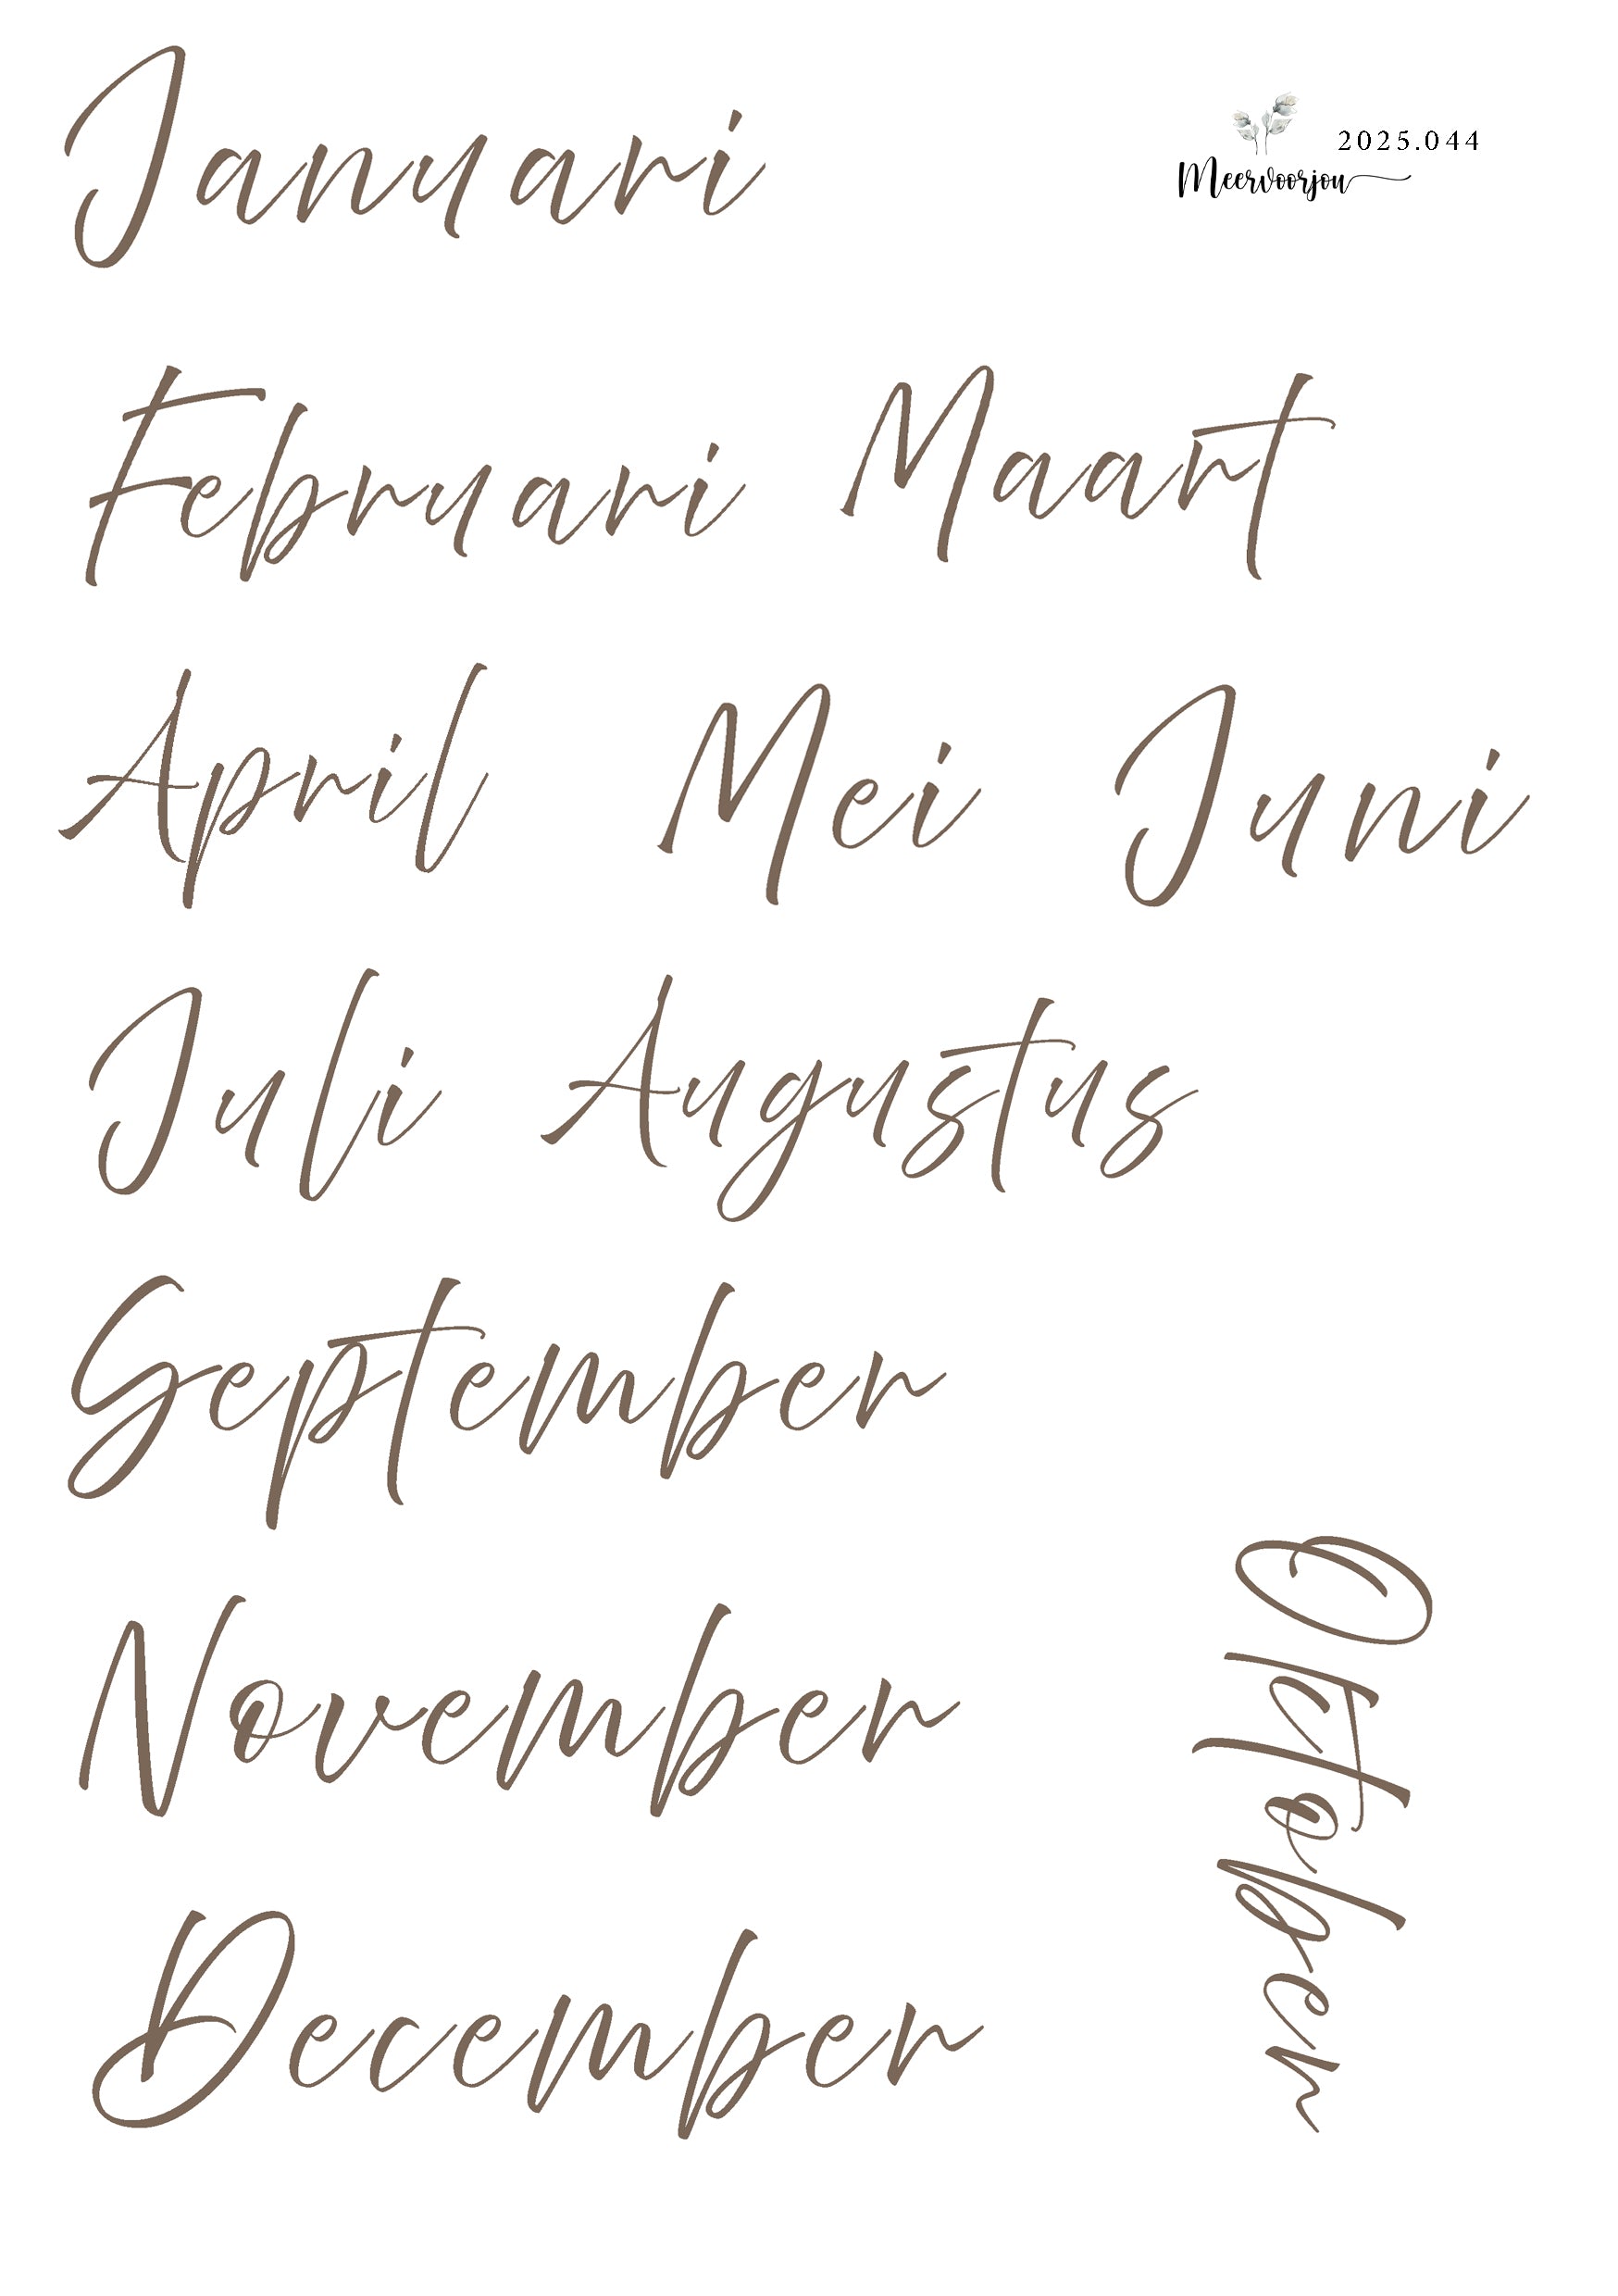 Januari
2025.044
Meervoorjou
Februari Maart
April Mei Juni
Juli Augustus
September
Oktober
November
December